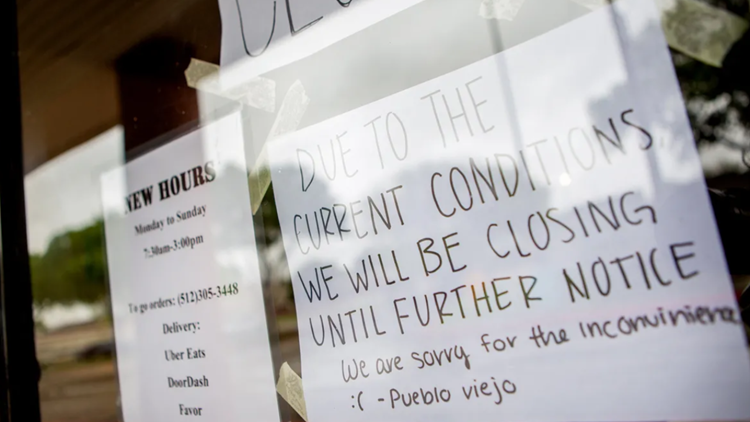 NEW HOURS
Monday to Sunday
7:30am-3:00pm
To go orders: (512)305-3448
Delivery:
Uber Eats
DoorDash
Favor
DUE TO THE
CURRENT CONDITIONS,
WE WILL BE CLOSING
UNTIL FURTHER NOTICE
We are sorry for the Inconvinience
:( -Pueblo viejo